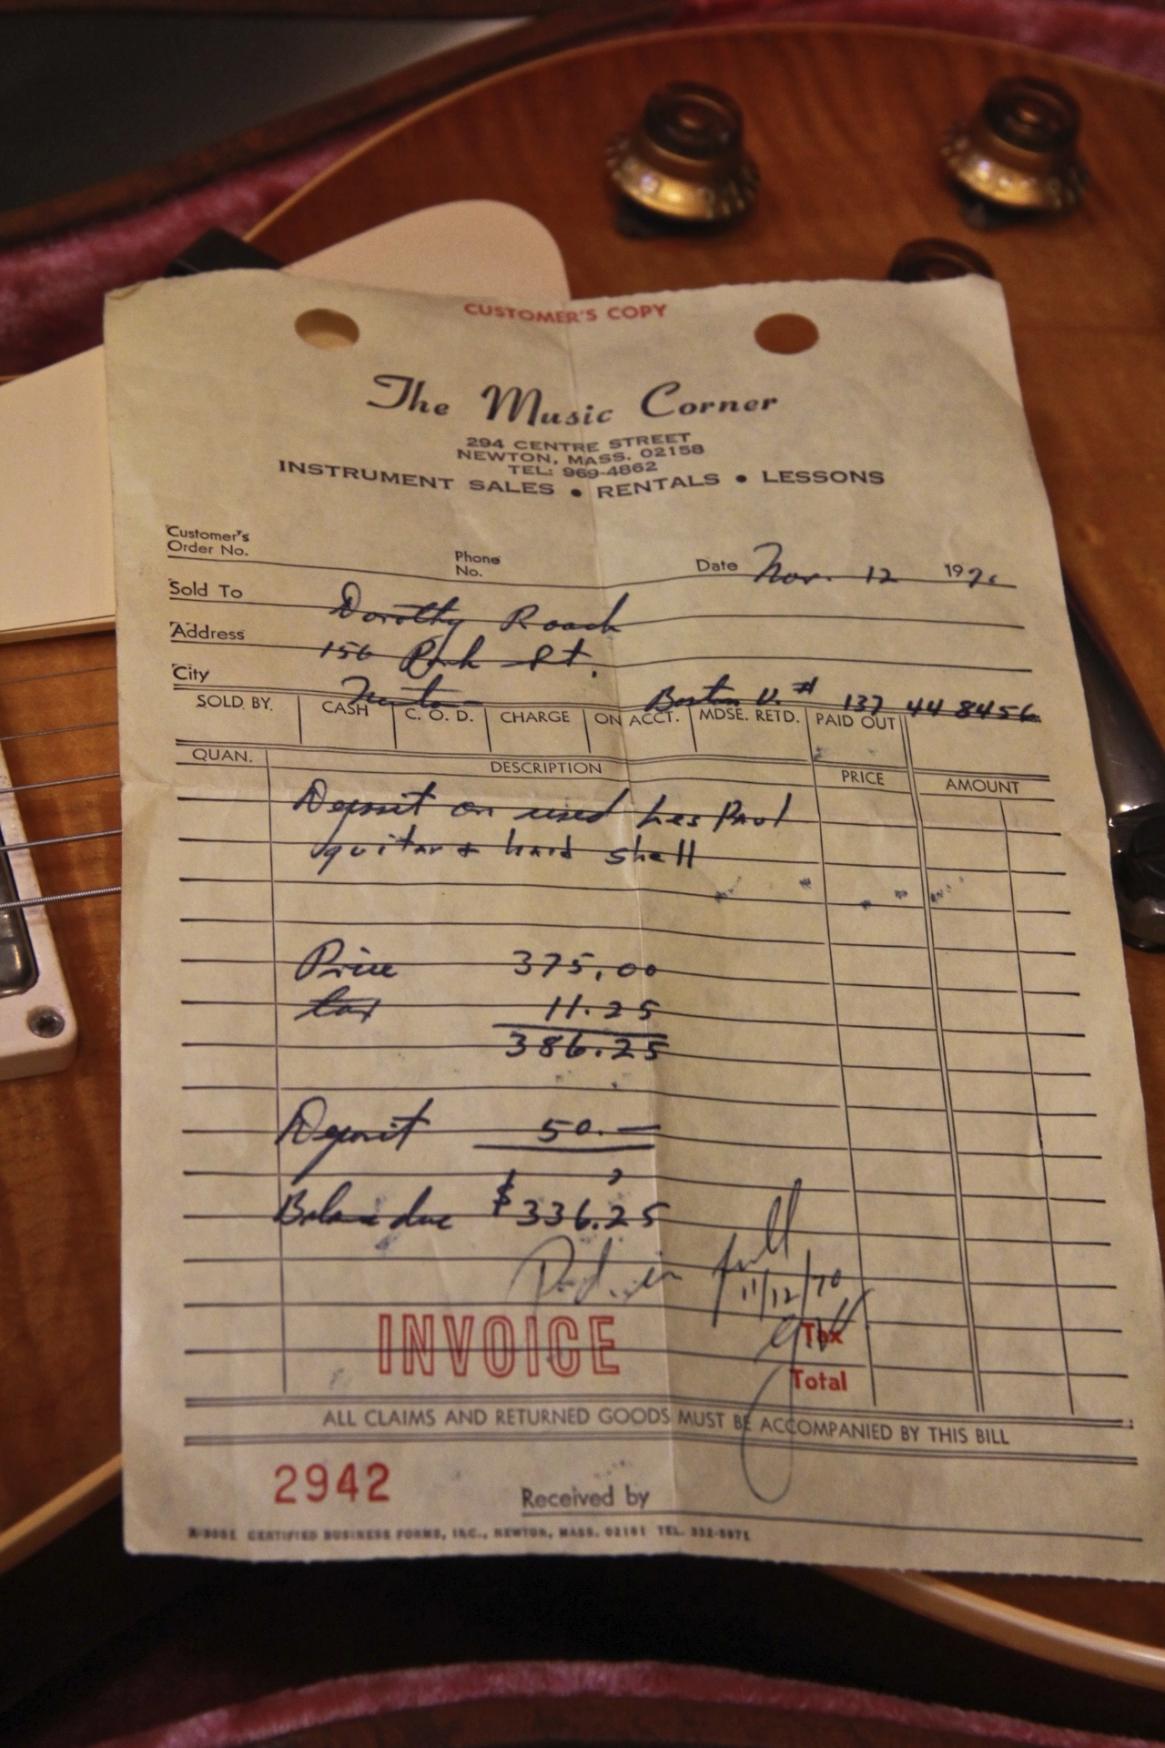 CUSTOMER'S COPY
The Music Corner
294 CENTRE STREET
NEWTON, MASS. 02158
TEL: 969-4862
INSTRUMENT SALES • RENTALS • LESSONS
Customer's Order No.
Phone No.
Date Nov. 12 1970
Sold To Dorothy Roach
Address 156 Park St.
City Newton Boston U. # 137 44 8456
SOLD BY. CASH C. O. D. CHARGE ON ACCT. MDSE. RETD. PAID OUT
QUAN. DESCRIPTION PRICE AMOUNT
Deposit on used Les Paul
guitar + hard shell
Price 375.00
tax 11.25
386.25
Deposit 50.—
Balance due $336.25
Pd. in full
11/12/70
INVOICE
Tax
Total
ALL CLAIMS AND RETURNED GOODS MUST BE ACCOMPANIED BY THIS BILL
2942
Received by
CERTIFIED BUSINESS FORMS, INC., NEWTON, MASS. 02161 TEL. 332-5971